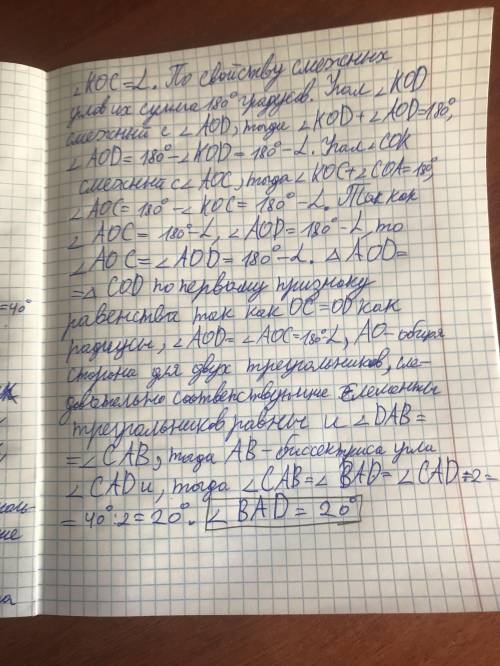 ∠KOC = L. По свойству смежных
углов их сумма 180° градусов. Угол ∠KOD
смежный с ∠AOD, тогда ∠KOD + ∠AOD=180°,
∠AOD = 180° - ∠KOD = 180° - L. Угол ∠COK
смежный с ∠AOC, тогда ∠KOC+∠COA=180°,
∠AOC = 180° - ∠KOC = 180° - L. Так как
∠AOC = 180° - L, ∠AOD = 180° - L, то
∠AOC = ∠AOD = 180° - L. △AOD =
= △COD по первому признаку
равенства так как OC = OD как
радиусы, ∠AOD = ∠AOC = 180° - L, AO - общая
сторона для двух треугольников, сле-
довательно соответствующие элементы
треугольников равны и ∠DAB =
= ∠CAB, тогда AB - биссектриса угла
∠CAD и, тогда ∠CAB = ∠BAD = ∠CAD ÷ 2 =
= 40° : 2 = 20°. ∠BAD = 20°
=40°